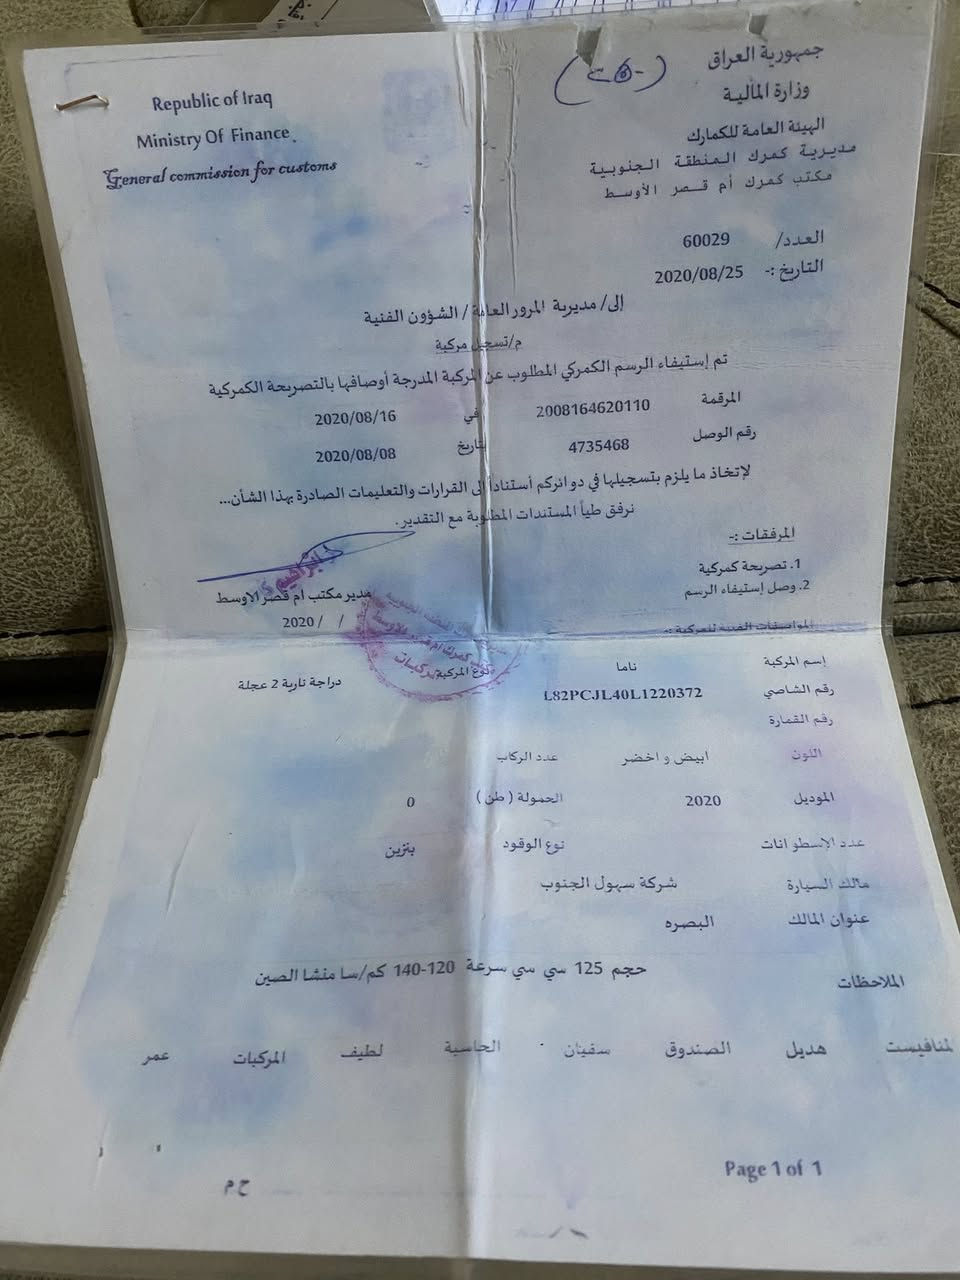 جمهورية العراق
وزارة المالية
الهيئة العامة للكمارك
مديرية كمرك المنطقة الجنوبية
مكتب كمرك أم قصر الأوسط
Republic of Iraq
Ministry Of Finance
General commission for customs
العدد/ 60029
التاريخ :- 2020/08/25
إلى/ مديرية المرور العامة / الشؤون الفنية
م/تسجيل مركبة
تم إستيفاء الرسم الكمركي المطلوب عن المركبة المدرجة أوصافها بالتصريحة الكمركية
المرقمة 2008164620110 في 2020/08/16
رقم الوصل 4735468 بتاريخ 2020/08/08
لإتخاذ ما يلزم بتسجيلها في دوائركم أستناداً الى القرارات والتعليمات الصادرة بهذا الشأن...
نرفق طياً المستندات المطلوبة مع التقدير.
المرفقات :-
1. تصريحة كمركية
2. وصل إستيفاء الرسم
مدير مكتب ام قصر الاوسط
2020/ /
المواصفات الفنية للمركبة :-
إسم المركبة ناما نوع المركبة دراجة نارية 2 عجلة
رقم الشاصي L82PCJL40L1220372
رقم القمارة
اللون ابيض و اخضر عدد الركاب
الموديل 2020 الحمولة (طن) 0
عدد الإسطوانات نوع الوقود بنزين
مالك السيارة شركة سهول الجنوب
عنوان المالك البصره
الملاحظات حجم 125 سي سي سرعة 120-140 كم/سا منشا الصين
المنافيست هديل الصندوق سفيان الحاسبة لطيف المركبات عمر
Page 1 of 1
ح م